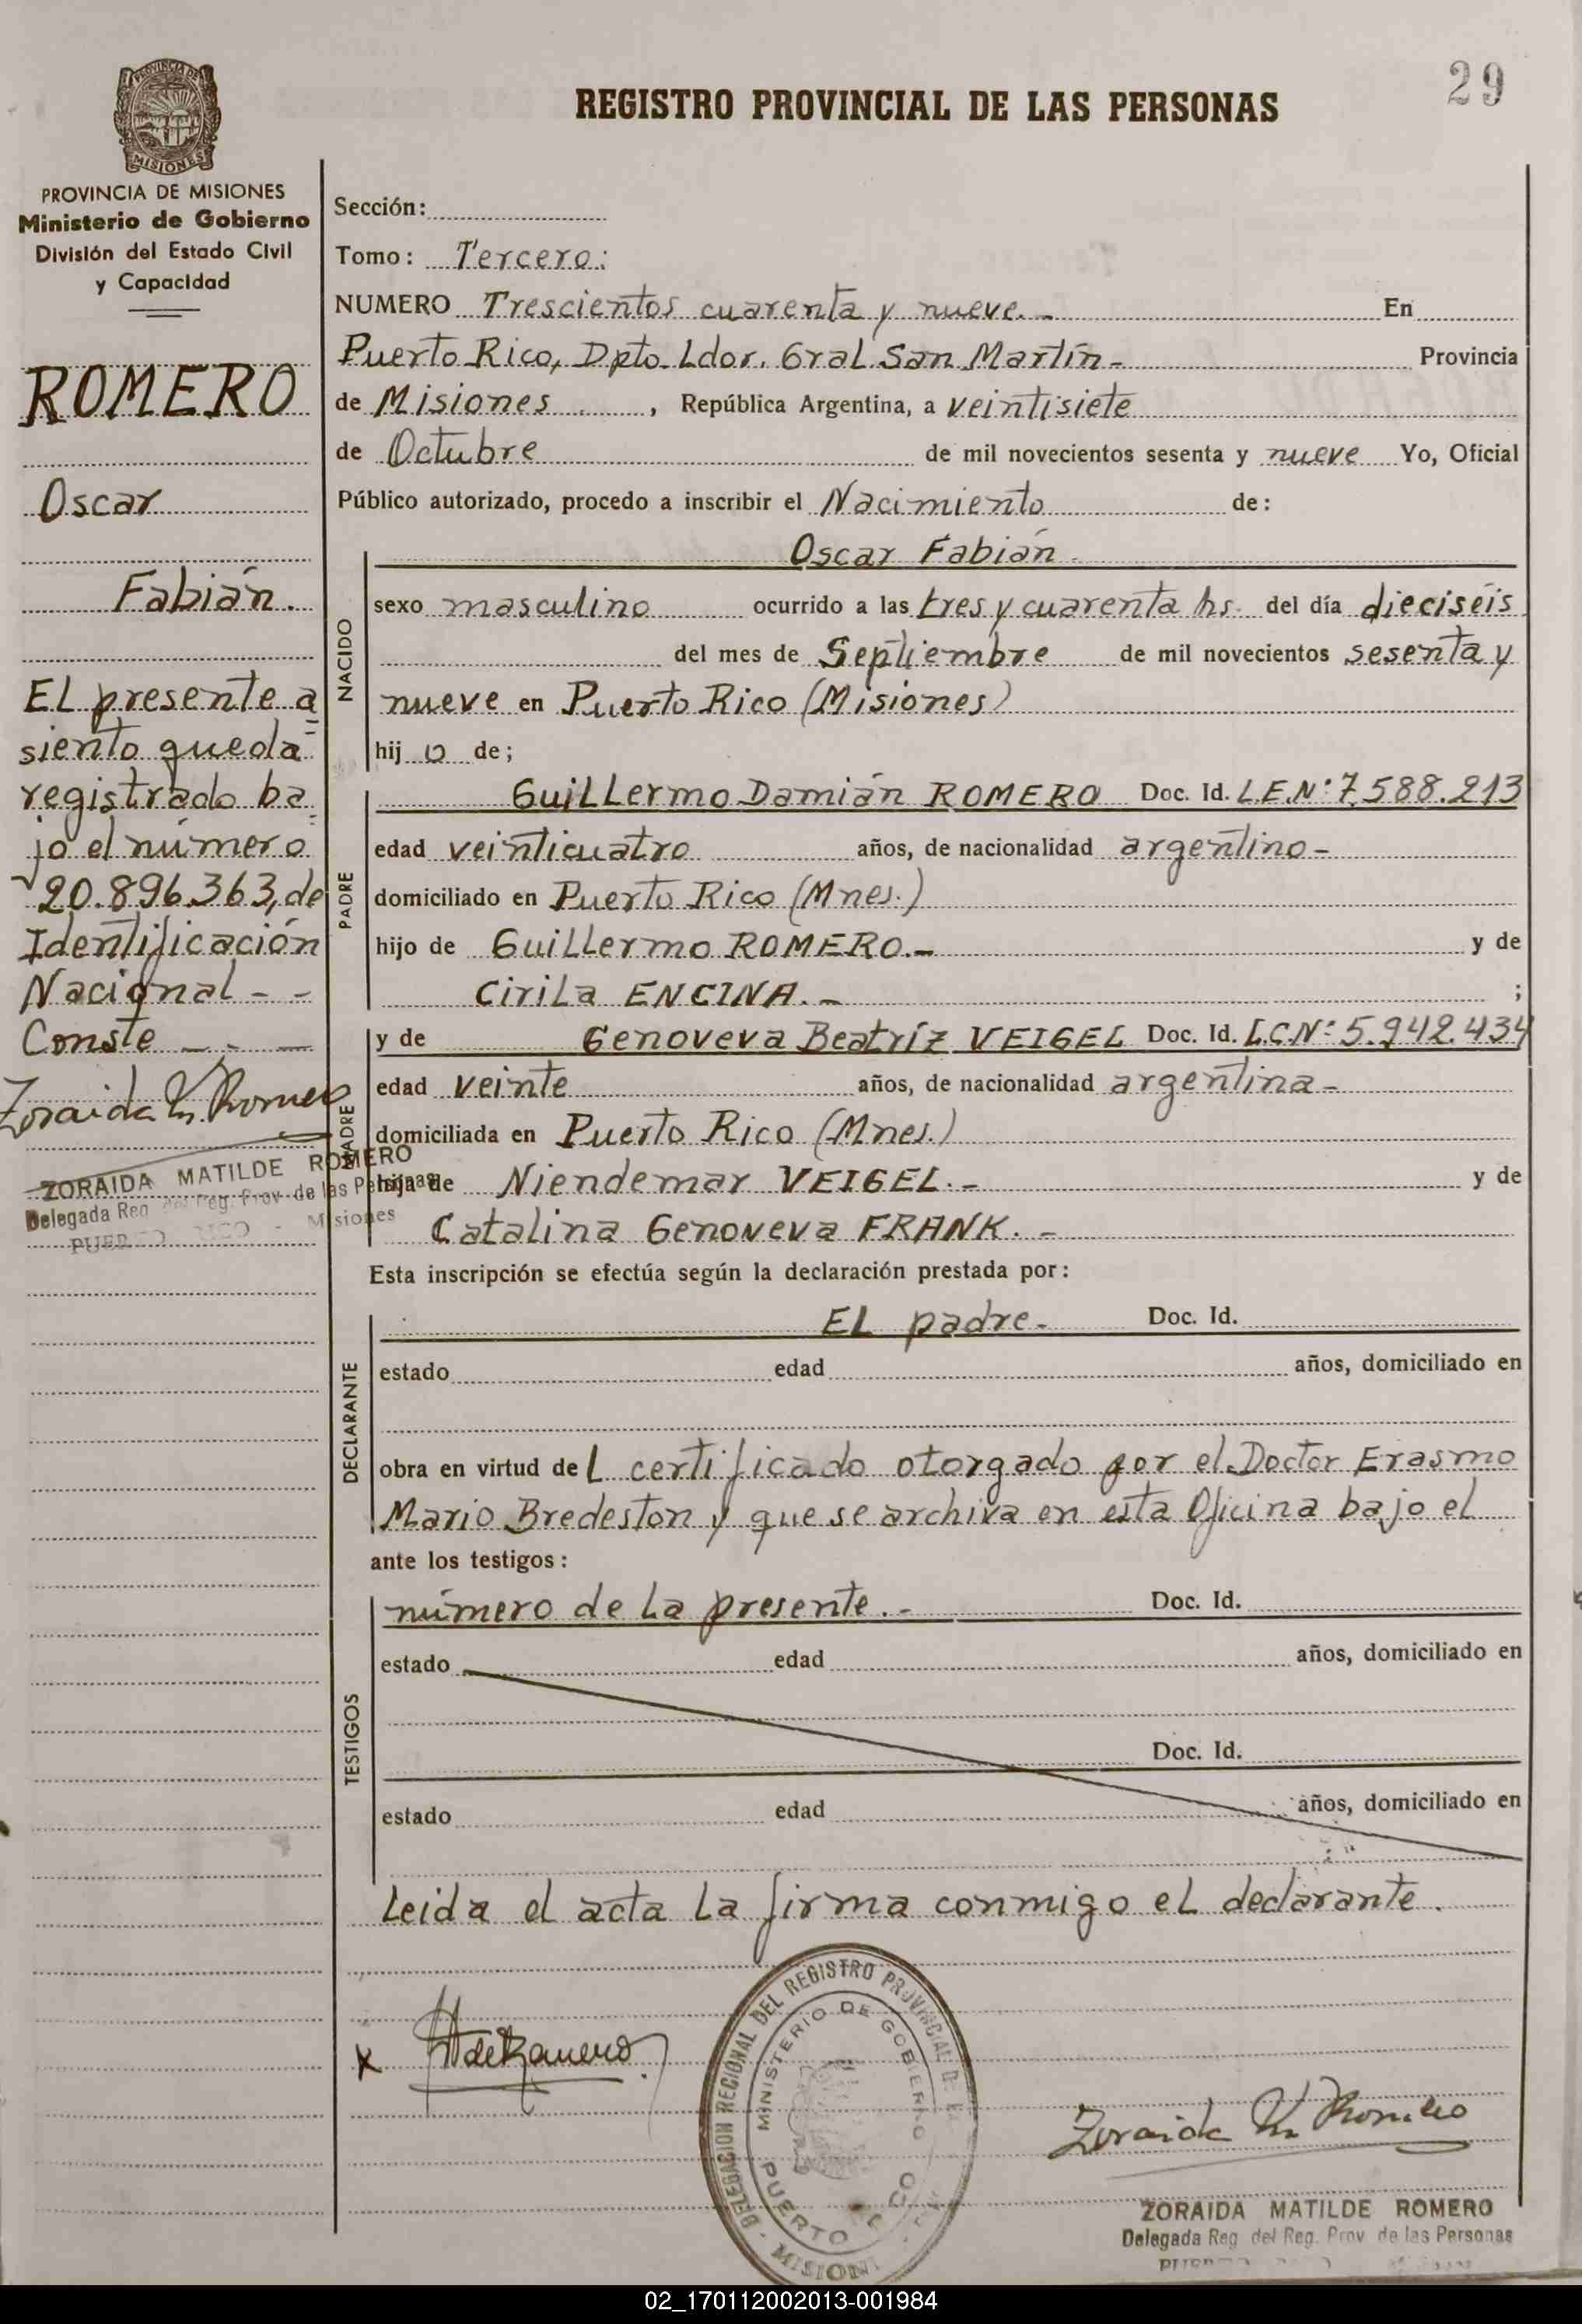 29
REGISTRO PROVINCIAL DE LAS PERSONAS
PROVINCIA DE
MISIONES
PROVINCIA DE MISIONES
Ministerio de Gobierno
División del Estado Civil
y Capacidad
ROMERO
Oscar
Fabián.
El presente a
siento queda
registrado ba
jo el número
20.896.363, de
Identificación
Nacional - -
Conste - . -
Zoraida M. Romero
ZORAIDA MATILDE ROMERO
Delegada Reg. del Reg. Prov. de las Personas
PUERTO RICO - Misiones
Sección:
Tomo: Tercero:
NUMERO Trescientos cuarenta y nueve.- En
Puerto Rico, Dpto. Ldor. Gral San Martín- Provincia
de Misiones , República Argentina, a veintisiete
de Octubre de mil novecientos sesenta y nueve Yo, Oficial
Público autorizado, procedo a inscribir el Nacimiento de:
NACIDO
Oscar Fabián.
sexo masculino ocurrido a las tres y cuarenta hs. del día dieciséis
del mes de Septiembre de mil novecientos sesenta y
nueve en Puerto Rico (Misiones)
hij o de;
PADRE
Guillermo Damián ROMERO Doc. Id. L.E.Nº 7.588.213
edad veinticuatro años, de nacionalidad argentino-
domiciliado en Puerto Rico (Mnes.)
hijo de Guillermo ROMERO.- y de
Cirila ENCINA.- ;
MADRE
y de Genoveva Beatríz VEIGEL Doc. Id. L.C.Nº 5.942.434
edad veinte años, de nacionalidad argentina-
domiciliada en Puerto Rico (Mnes.)
hija de Niendemar VEIGEL.- y de
Catalina Genoveva FRANK.-
Esta inscripción se efectúa según la declaración prestada por:
DECLARANTE
El padre- Doc. Id.
estado edad años, domiciliado en
obra en virtud del certificado otorgado por el Doctor Erasmo
Mario Bredeston y que se archiva en esta Oficina bajo el
ante los testigos:
TESTIGOS
número de la presente.- Doc. Id.
estado edad años, domiciliado en
Doc. Id.
estado edad años, domiciliado en
Leida el acta la firma conmigo el declarante.
x
DELEGACION REGIONAL DEL REGISTRO PROVINCIAL DE
MINISTERIO DE GOBIERNO
PUERTO RICO
Zoraida M. Romero
ZORAIDA MATILDE ROMERO
Delegada Reg. del Reg. Prov. de las Personas
02_170112002013-001984